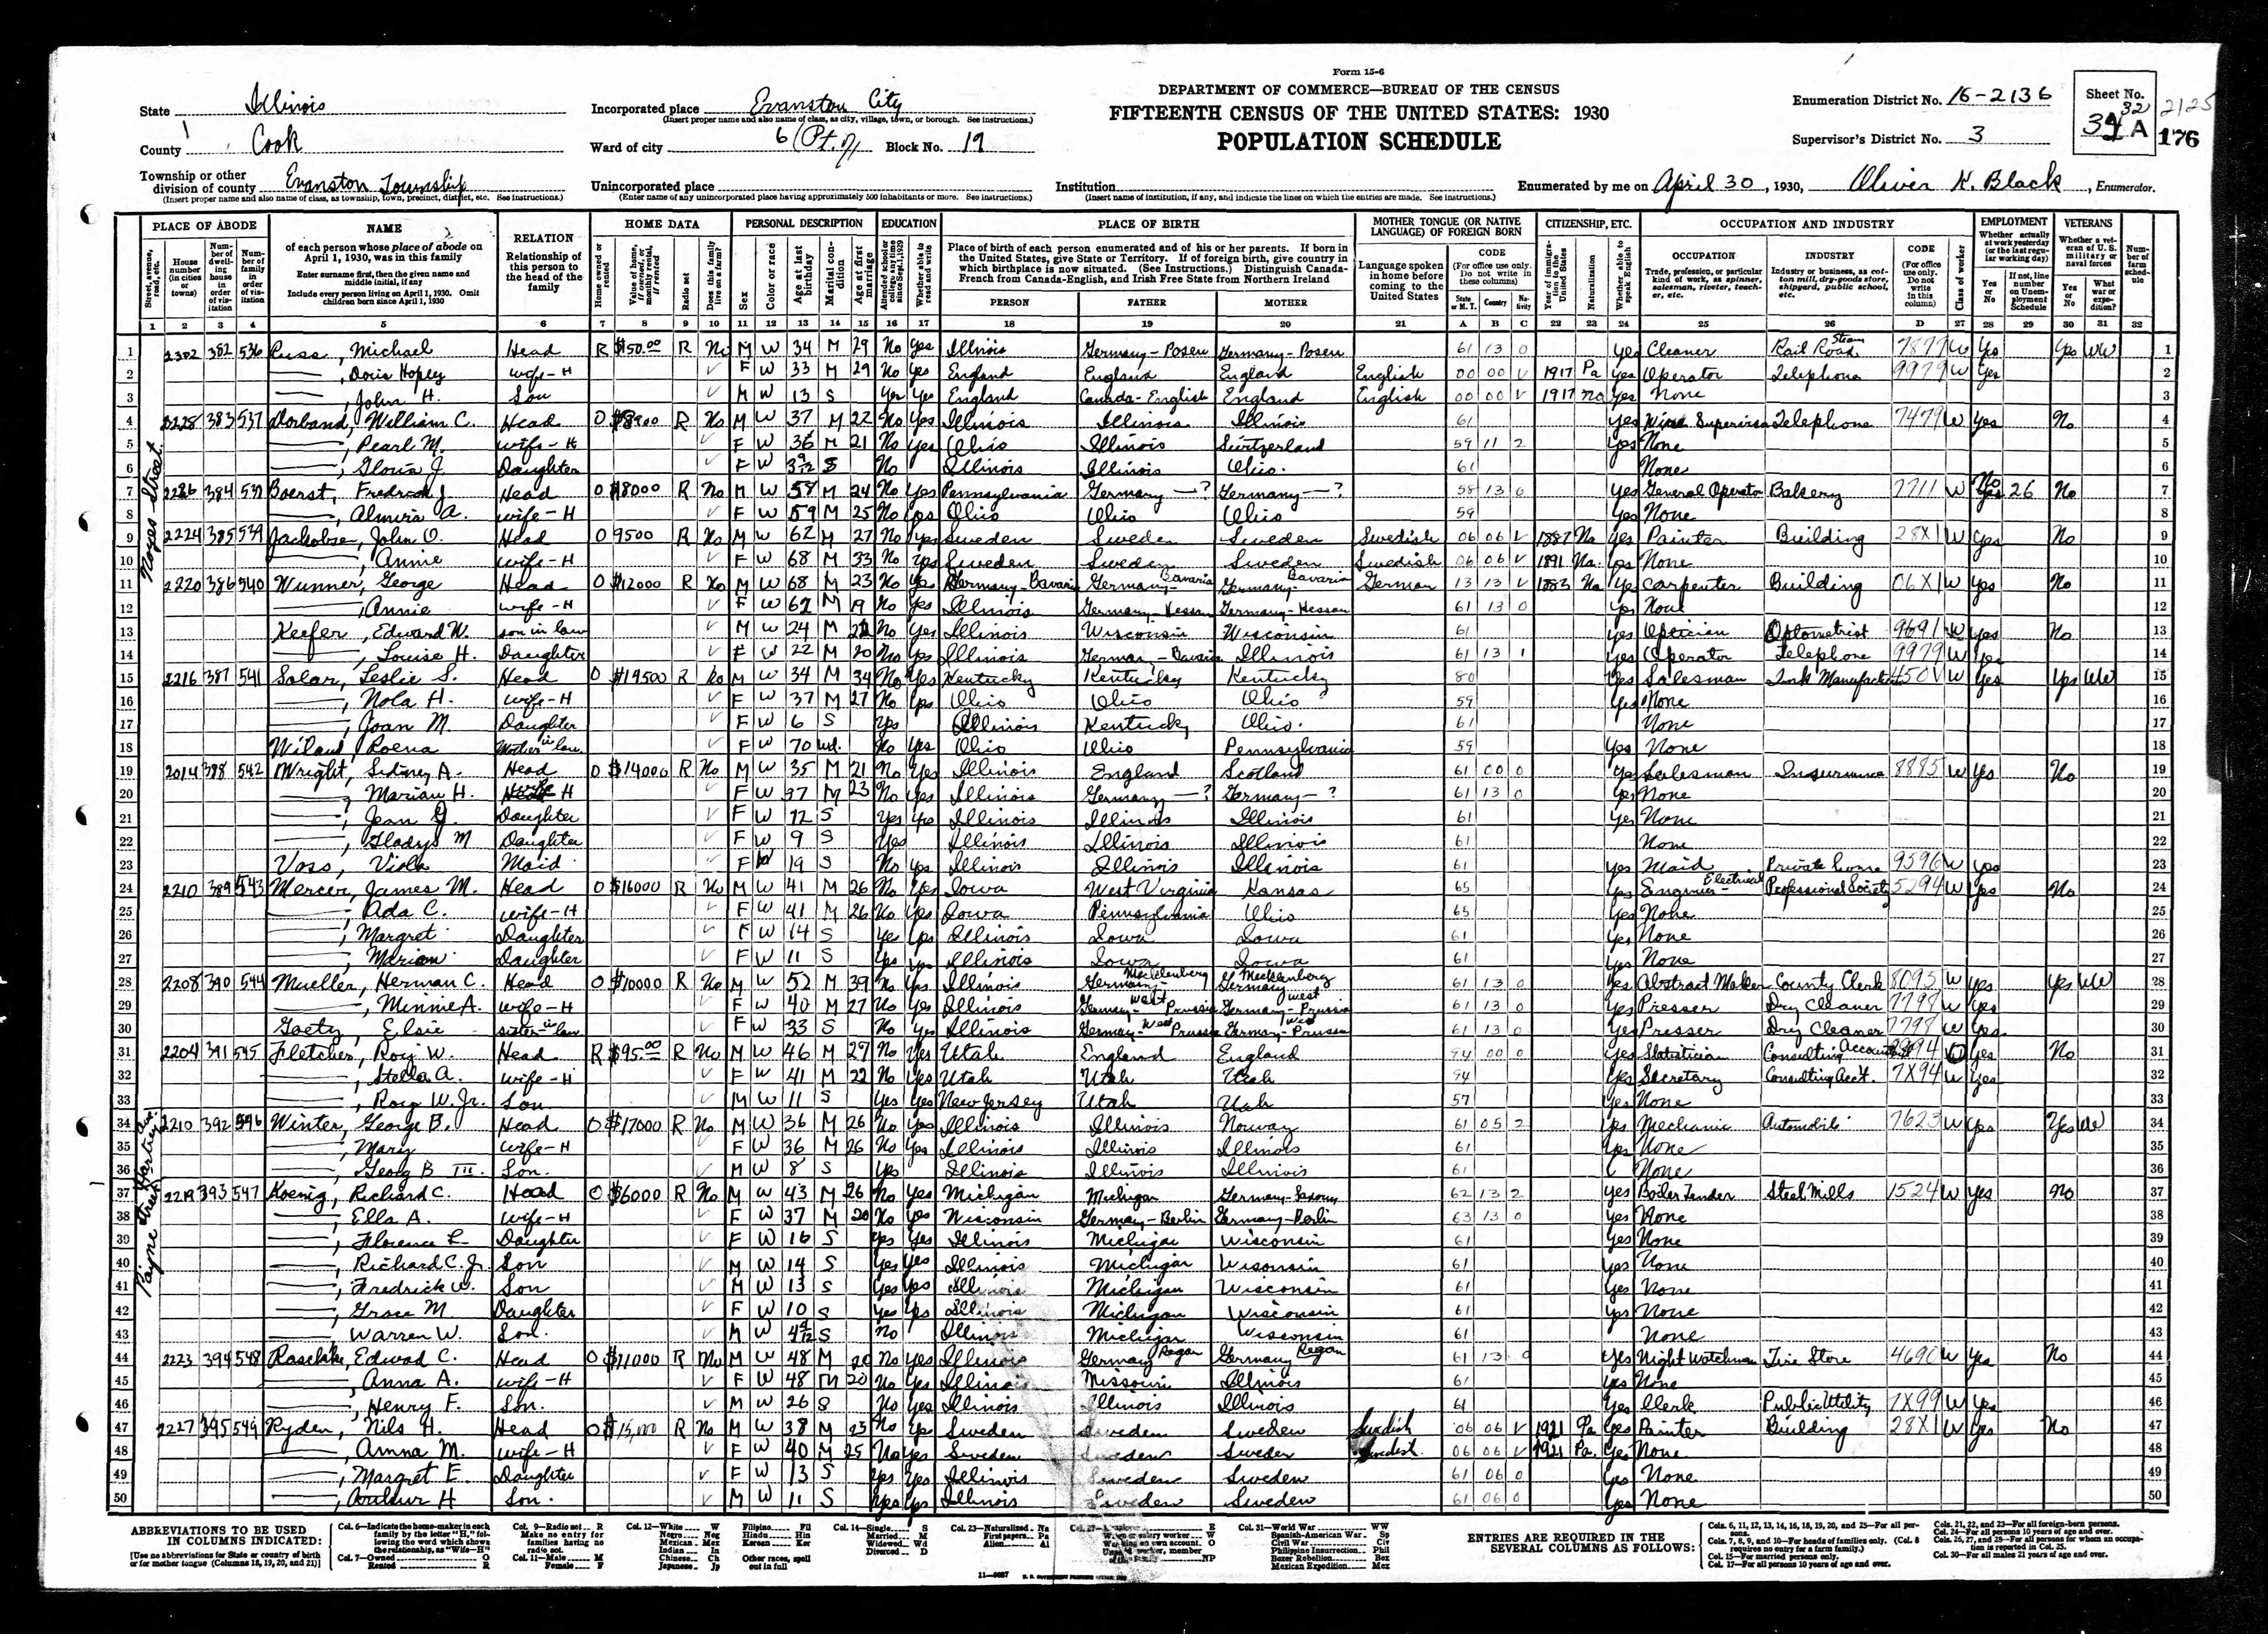 Form 15-6
DEPARTMENT OF COMMERCE—BUREAU OF THE CENSUS
FIFTEENTH CENSUS OF THE UNITED STATES: 1930
POPULATION SCHEDULE
State Illinois
County Cook
Township or other division of county Evanston Township
(Insert proper name and also name of class, as township, town, precinct, district, etc. See instructions.)
Incorporated place Evanston City
(Insert proper name and also name of class, as city, village, town, or borough. See instructions.)
Ward of city 6 (Pt. Block No. 19
Unincorporated place
(Enter name of any unincorporated place having approximately 500 inhabitants or more. See instructions.)
Institution
(Insert name of institution, if any, and indicate the lines on which the entries are made. See instructions.)
Enumeration District No. 16-2136
Supervisor's District No. 3
Sheet No. 32 A
2125
176
Enumerated by me on April 30, 1930, Oliver K. Black, Enumerator.
PLACE OF ABODE NAME RELATION HOME DATA PERSONAL DESCRIPTION EDUCATION PLACE OF BIRTH MOTHER TONGUE (OR NATIVE LANGUAGE) OF FOREIGN BORN CITIZENSHIP, ETC. OCCUPATION AND INDUSTRY EMPLOYMENT VETERANS
of each person whose place of abode on April 1, 1930, was in this family
Enter surname first, then the given name and middle initial, if any
Include every person living on April 1, 1930. Omit children born since April 1, 1930
Relationship of this person to the head of the family
Place of birth of each person enumerated and of his or her parents. If born in the United States, give State or Territory. If of foreign birth, give country in which birthplace is now situated. (See Instructions.) Distinguish Canada-French from Canada-English, and Irish Free State from Northern Ireland
PERSON FATHER MOTHER
1 2 3 4 5 6 7 8 9 10 11 12 13 14 15 16 17 18 19 20 21 A B C 22 23 24 25 26 D 27 28 29 30 31 32
Noyes Street
1 2302 382 536 Russ, Michael Head R $50.00 R No M W 34 M 29 No Yes Illinois Germany-Posen Germany-Posen 61 13 0 yes Cleaner Steam Rail Road 7877 W Yes Yes WW 1
2 Doris Hopey wife-H F W 33 M 29 No Yes England England England English 00 00 V 1917 Pa Yes Operator Telephone 9979 W Yes 2
3 John H. Son M W 13 S Yes Yes England Canada-English England English 00 00 V 1917 no Yes None 3
4 2228 383 537 Dorband, William C. Head O $8900 R No M W 37 M 22 No Yes Illinois Illinois Illinois 61 yes Supervisor Telephone 7479 W Yes No 4
5 Pearl M. wife-H F W 36 M 21 No Yes Ohio Illinois Switzerland 59 11 2 Yes None 5
6 Gloria J. Daughter F W 3 9/12 S No Illinois Illinois Ohio. 61 None 6
7 2226 384 538 Boerst, Fredrick J. Head O $8000 R No M W 58 M 24 No Yes Pennsylvania Germany-? Germany-? 58 13 0 Yes General Operator Bakery 7711 W No 26 No 7
8 Almira A. wife-H F W 59 M 25 No Yes Ohio Ohio Ohio 59 Yes None 8
9 2224 385 539 Jackobson, John O. Head O 9500 R No M W 62 M 27 No yes Sweden Sweden Sweden Swedish 06 06 V 1887 Na Yes Painter Building 28X1 W Yes No 9
10 Annie wife-H F W 68 M 33 No Yes Sweden Sweden Sweden Swedish 06 06 V 1891 Na. Yes None 10
11 2220 386 540 Wunner, George Head O $12000 R No M W 68 M 23 No Yes Germany-Bavaria Germany-Bavaria Germany-Bavaria German 13 13 V 1883 Na Yes Carpenter Building 06X1 W Yes No 11
12 Annie wife-H F W 62 M 19 No Yes Illinois Germany-Hessen Germany-Hessen 61 13 0 Yes None 12
13 Keefer, Edward W. son in law M W 24 M 22 No Yes Illinois Wisconsin Wisconsin 61 yes Optician Optometrist 9691 W yes No 13
14 Louise H. Daughter F W 22 M 20 No Yes Illinois Germany-Bavaria Illinois 61 13 1 Yes Operator Telephone 9979 W Yes 14
15 2216 387 541 Salar, Leslie S. Head O $19500 R No M W 34 M 34 No Yes Kentucky Kentucky Kentucky 80 Yes Salesman Ink Manufacture 450V W Yes Yes WW 15
16 Nola H. wife-H F W 37 M 27 No Yes Ohio Ohio Ohio 59 Yes None 16
17 Joan M. Daughter F W 6 S Yes Illinois Kentucky Ohio. 61 None 17
18 Roena Mother in law F W 70 wd. No Yes Ohio Ohio Pennsylvania 59 Yes None 18
19 2014 388 542 Wright, Sidney A. Head O $14000 R No M W 35 M 21 No Yes Illinois England Scotland 61 00 0 Yes Salesman Insurance 8885 W Yes No 19
20 Marian H. wife H F W 37 M 23 No Yes Illinois Germany-? Germany-? 61 13 0 Yes None 20
21 Jean G. Daughter F W 12 S Yes Yes Illinois Illinois Illinois 61 yes None 21
22 Gladys M Daughter F W 9 S Yes Illinois Illinois Illinois 61 None 22
23 Voss, Viola Maid F W 19 S No yes Illinois Illinois Illinois 61 yes Maid Private home 9596 W yes 23
24 2210 389 543 Mercer, James M. Head O $16000 R No M W 41 M 26 No Yes Iowa West Virginia Kansas 65 Yes Engineer-Electrical Professional Society 5294 W Yes No 24
25 Ada C. wife-H F W 41 M 26 No Yes Iowa Pennsylvania Ohio 65 Yes None 25
26 Margret Daughter F W 14 S Yes Yes Illinois Iowa Iowa 61 Yes None 26
27 Marian Daughter F W 11 S Yes Yes Illinois Iowa Iowa 61 Yes None 27
28 2208 390 544 Mueller, Herman C. Head O $10000 R No M W 52 M 39 No Yes Illinois Germany-Mecklenberg Germany Mecklenberg 61 13 0 Yes Abstract Maker County Clerk 8095 W Yes Yes WW 28
29 Minnie A. wife-H F W 40 M 27 No Yes Illinois Germany-West Prussia Germany-West Prussia 61 13 0 Yes Presser Dry Cleaner 7798 W Yes 29
30 Goetz, Elsie sister in law F W 33 S No Yes Illinois Germany-West Prussia Germany-West Prussia 61 13 0 Yes Presser Dry Cleaner 7798 W Yes. 30
31 2204 391 545 Fletcher, Roy W. Head R $95.00 R No M W 46 M 27 No Yes Utah England England 94 00 0 Yes Statistician Consulting Yes No 31
32 Stella A. wife-H F W 41 M 22 No Yes Utah Utah Utah 94 Yes Secretary Consulting Acc't. 7X94 W Yes 32
33 Roy W. Jr. Son M W 11 S Yes Yes New Jersey Utah Utah 57 Yes None 33
Hartzell
34 2210 392 546 Winter, George B. Head O $17000 R No M W 36 M 26 No Yes Illinois Illinois Norway 61 05 2 Yes Mechanic Automobile 7623 W Yes Yes WW 34
35 Mary wife-H F W 36 M 26 No Yes Illinois Illinois Illinois 61 Yes None 35
36 Georg B III. Son. M W 8 S Yes Illinois Illinois Illinois 61 None 36
Payne Street
37 2219 393 547 Koenig, Richard C. Head O $6000 R No M W 43 M 26 No Yes Michigan Michigan Germany-Saxony 62 13 2 Yes Boiler Tender Steel Mills 1524 W yes No 37
38 Ella A. wife-H F W 37 M 20 No Yes Wisconsin Germany-Berlin Germany-Berlin 63 13 0 Yes None 38
39 Florence L Daughter F W 16 S Yes Yes Illinois Michigan Wisconsin 61 Yes None 39
40 Richard C. Jr. Son M W 14 S Yes Yes Illinois Michigan Wisconsin 61 Yes None 40
41 Fredrick W. Son M W 13 S Yes Yes Illinois Michigan Wisconsin 61 Yes None 41
42 Grace M Daughter F W 10 S Yes Yes Illinois Michigan Wisconsin 61 Yes None 42
43 Warren W. Son. M W S No Illinois Michigan Wisconsin 61 None 43
44 2223 394 548 Raschke, Edwad C. Head O $11000 R No M W 48 M 20 No Yes Illinois Germany Germany 61 13 0 Yes Night Watchman Tire Store 4690 W Yes No 44
45 Anna A. wife-H F W 48 M 20 No Yes Illinois Missouri Illinois 61 Yes None 45
46 Henry F. Son. M W 26 S No Yes Illinois Illinois Illinois 61 Yes Clerk Public Utility 7X99 W Yes 46
47 2227 395 549 Ryden, Nils H. Head O $15,000 R No M W 38 M 23 No Yes Sweden Sweden Sweden Swedish 06 06 V 1921 Pa Yes Painter Building 28X1 W Yes No 47
48 Anna M. wife-H F W 40 M 25 No Yes Sweden Sweden Sweden Swedish 06 06 V 1921 Pa. Yes None 48
49 Margret E. Daughter F W 13 S Yes Yes Illinois Sweden Sweden 61 06 0 Yes None 49
50 Arthur H Son. M W 11 S Yes Yes Illinois Sweden Sweden 61 06 0 Yes None 50
ABBREVIATIONS TO BE USED IN COLUMNS INDICATED:
[Use no abbreviations for State or country of birth or for mother tongue (Columns 18, 19, 20, and 21)]
Col. 6—Indicate the home-maker in each family by the letter "H," following the word which shows the relationship, as "Wife—H"
Col. 7—Owned O Rented R
Col. 9—Radio set R Make no entry for families having no radio set.
Col. 11—Male M Female F
Col. 12—White W Negro Neg Mexican Mex Indian In Chinese Ch Japanese Jp Filipino Fil Hindu Hin Korean Kor Other races, spell out in full
Col. 14—Single S Married M Widowed Wd Divorced D
Col. 23—Naturalized Na First papers Pa Alien Al
Col. 31—World War WW Spanish-American War Sp Civil War Civ Philippine Insurrection Phil Boxer Rebellion Box Mexican Expedition Mex
ENTRIES ARE REQUIRED IN THE SEVERAL COLUMNS AS FOLLOWS:
Cols. 6, 11, 12, 13, 14, 16, 18, 19, 20, and 25—For all persons.
Cols. 7, 8, 9, and 10—For heads of families only. (Col. 8 requires no entry for a farm family.)
Col. 15—For married persons only.
Col. 17—For all persons 10 years of age and over.
Cols. 21, 22, and 23—For all foreign-born persons.
Col. 24—For all persons 10 years of age and over.
Cols. 26, 27, and 28—For all persons for whom an occupation is reported in Col. 25.
Col. 30—For all males 21 years of age and over.